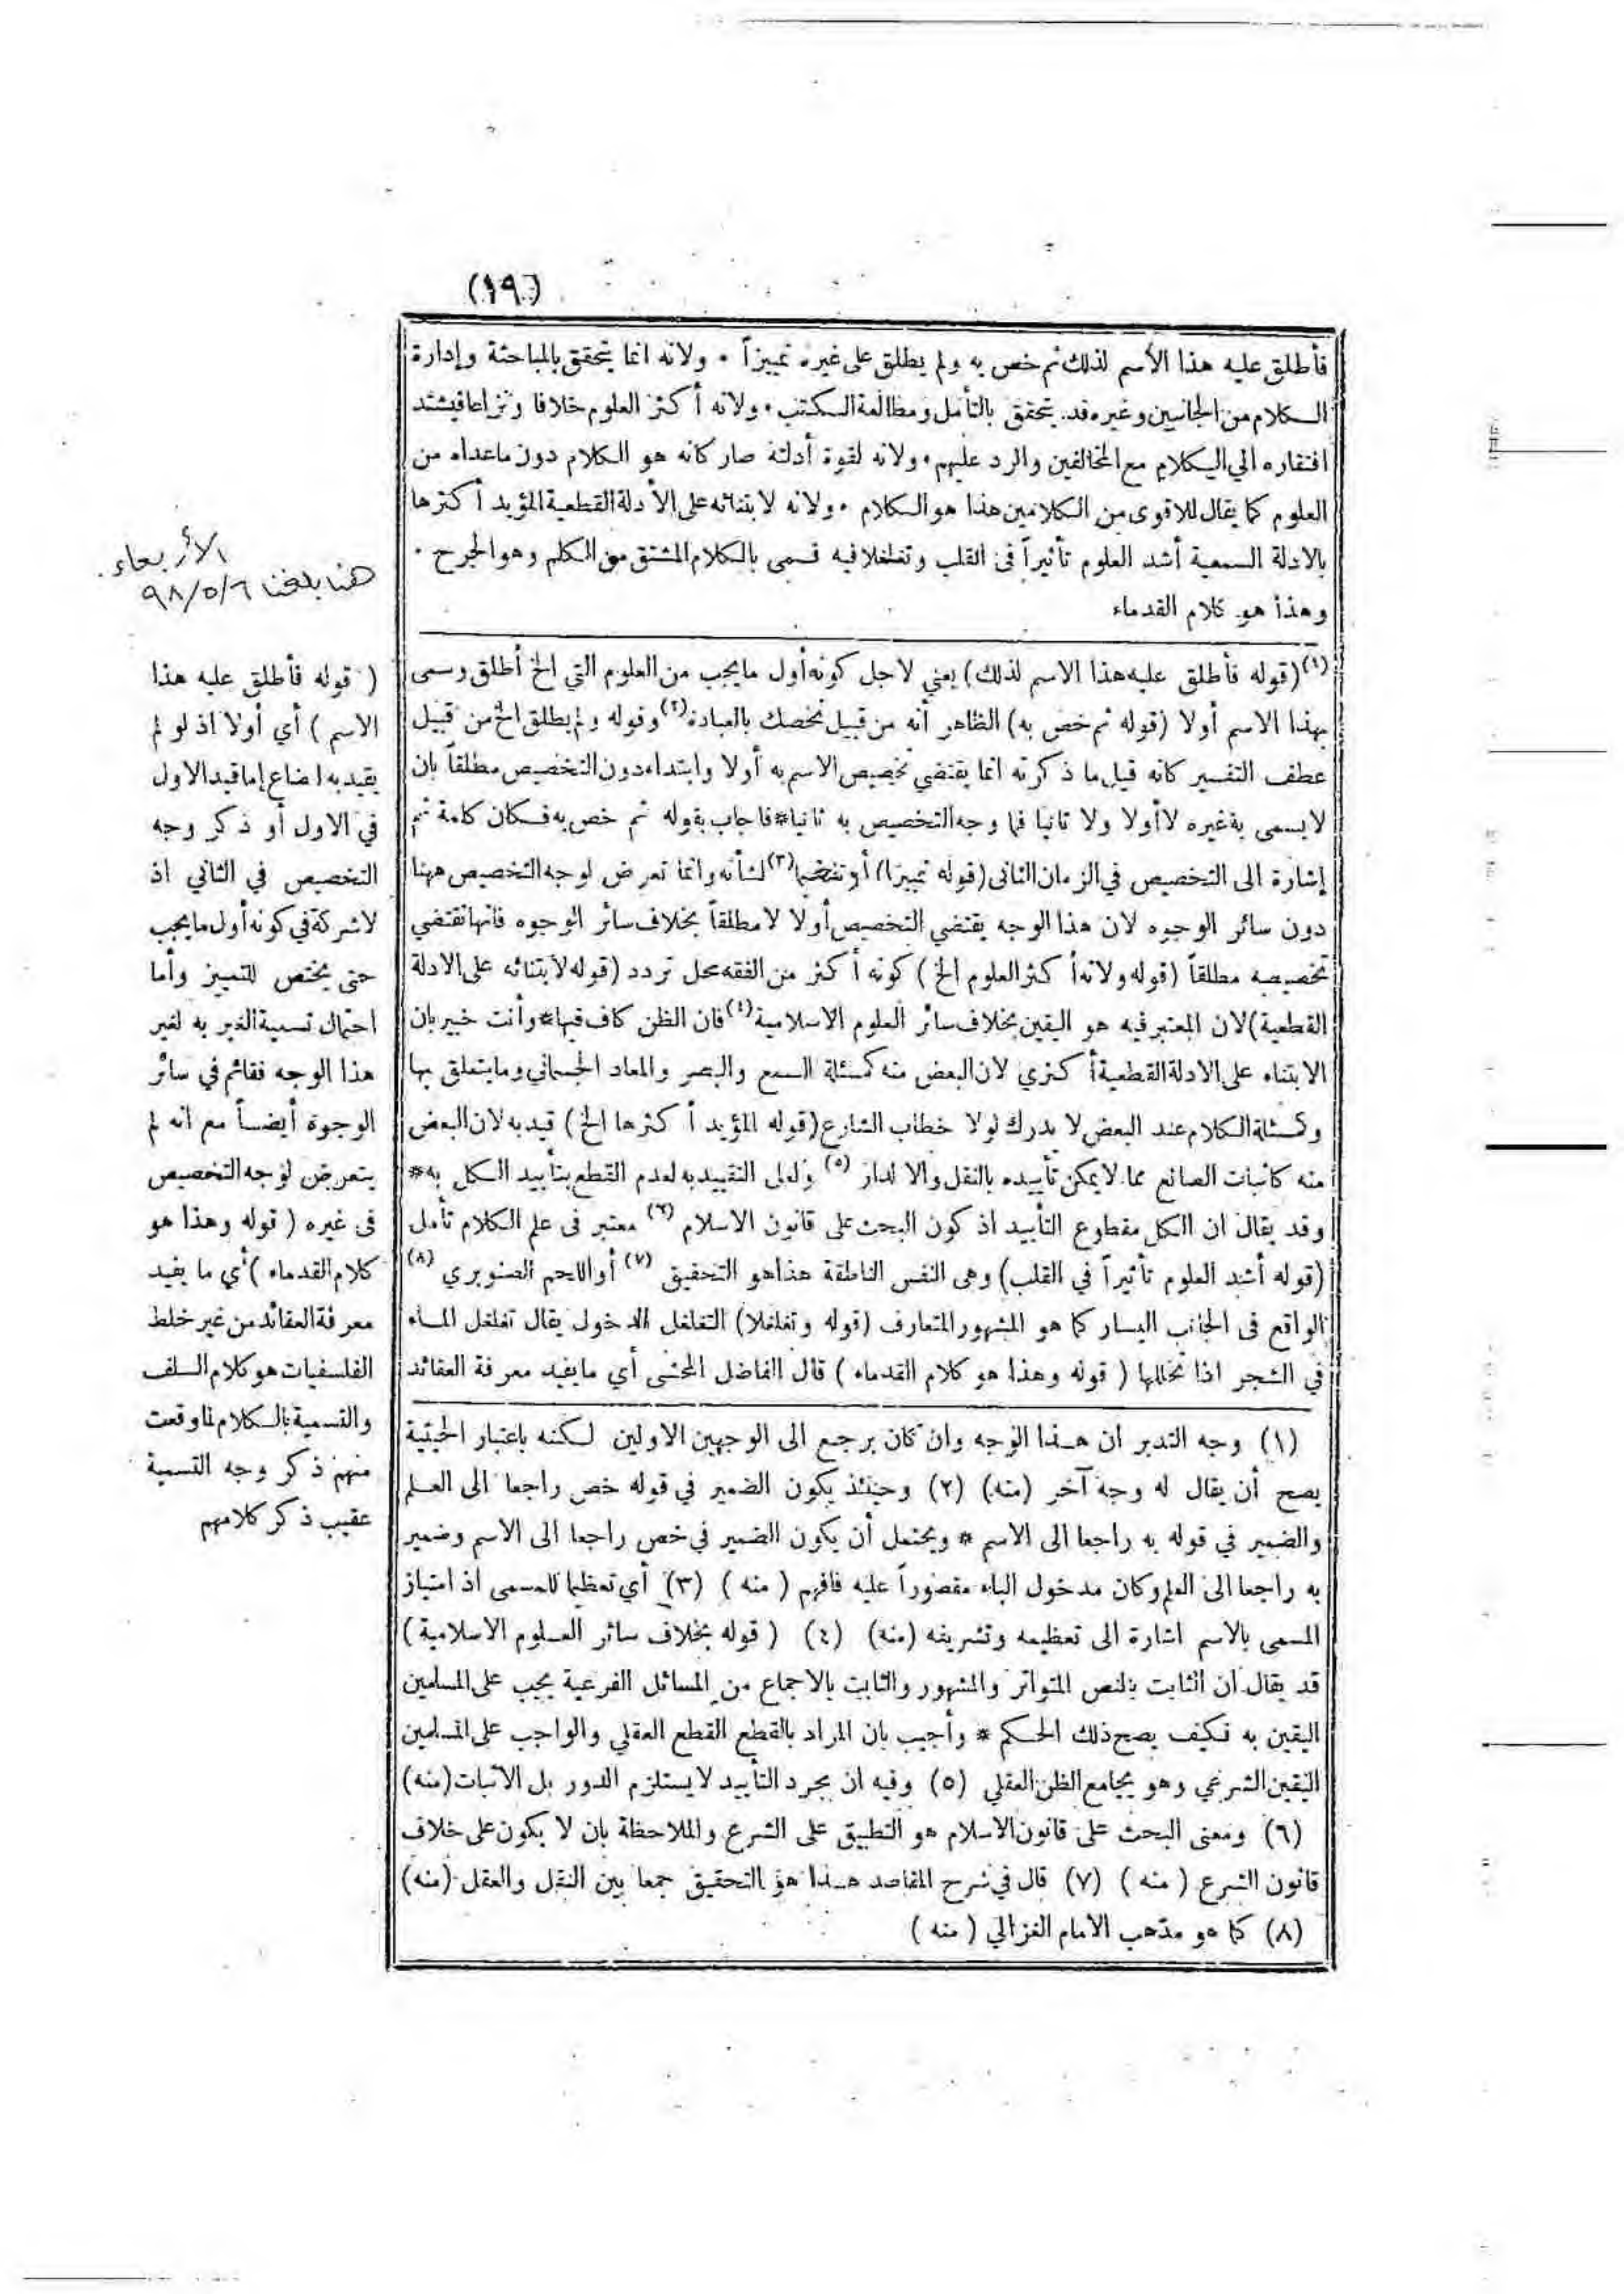 (١٩)
فأطلق عليه هذا الأسم لذلك ثم خص به ولم يطلق على غيره تمييزاً • ولانه انما يتحقق بالمباحثة وإدارة
الكلام من الجانبين وغيره قد يتحقق بالتأمل ومطالعة الكتب • ولانه أكثر العلوم خلافا ونزاعا فيشتد
افتقاره الي الكلام مع المخالفين والرد عليهم • ولانه لقوة أدلته صار كانه هو الكلام دون ماعداه من
العلوم كما يقال للاقوى من الكلامين هذا هو الكلام • ولانه لابتنائه على الأدلة القطعية المؤيد أكثرها
بالادلة السمعية أشد العلوم تأثيراً فى القلب وتغلغلا فيه فسمى بالكلام المشتق من الكلم وهو الجرح •
وهذا هو كلام القدماء
(١) (قوله فأطلق عليه هذا الاسم لذلك) يعني لاجل كونه أول مايجب من العلوم التي الخ أطلق وسمى
بهذا الاسم أولا (قوله ثم خص به) الظاهر أنه من قبيل نخصك بالعبادة (٢) وقوله ولم يطلق الخ من قبيل
عطف التفسير كانه قيل ما ذكرته انما يقتضي تخصيص الاسم به أولا وابتداء دون التخصيص مطلقاً بان
لايسمى به غيره لا أولا ولا ثانيا فما وجه التخصيص به ثانيا * فاجاب بقوله ثم خص به فكان كلمة ثم
إشارة الى التخصيص في الزمان الثانى (قوله تمييزا) أو تفخيما (٣) لشأنه وانما تعرض لوجه التخصيص ههنا
دون سائر الوجوه لان هذا الوجه يقتضي التخصيص أولا لا مطلقاً بخلاف سائر الوجوه فانها تقتضي
تخصيصه مطلقاً (قوله ولانه أكثر العلوم الخ) كونه أكثر من الفقه محل تردد (قوله لابتنائه على الادلة
القطعية) لان المعتبر فيه هو اليقين بخلاف سائر العلوم الاسلامية (٤) فان الظن كاف فيها * وأنت خبير بان
الابتناء على الادلة القطعية أكثري لان البعض منه كمسئلة السمع والبصر والمعاد الجسماني ومايتعلق بها
وكمسئلة الكلام عند البعض لا يدرك لولا خطاب الشارع (قوله المؤيد أكثرها الخ) قيد به لان البعض
منه كاثبات الصانع مما لايمكن تأييده بالنقل والا لدار (٥) ولعل التقييد به لعدم القطع بتأييد الكل به *
وقد يقال ان الكل مقطوع التأييد اذ كون البحث على قانون الاسلام (٦) معتبر فى علم الكلام تأمل
(قوله أشد العلوم تأثيراً في القلب) وهى النفس الناطقة هذا هو التحقيق (٧) أو اللحم الصنوبري (٨)
الواقع فى الجانب اليسار كما هو المشهور المتعارف (قوله وتغلغلا) التغلغل الدخول يقال تغلغل الماء
في الشجر اذا تخللها ( قوله وهذا هو كلام القدماء ) قال الفاضل المحشى أي مايفيد معرفة العقائد
(١) وجه التدبر ان هذا الوجه وان كان يرجع الى الوجهين الاولين لكنه باعتبار الحيثية
يصح أن يقال له وجه آخر (منه) (٢) وحينئذ يكون الضمير في قوله خص راجعا الى العلم
والضمير في قوله به راجعا الى الاسم * ويحتمل أن يكون الضمير في خص راجعا الى الاسم وضمير
به راجعا الى العلم وكان مدخول الباء مقصوراً عليه فافهم ( منه ) (٣) أي تعظيما للمسمى اذ امتياز
المسمى بالاسم اشارة الى تعظيمه وتشريفه (منه) (٤) ( قوله بخلاف سائر العلوم الاسلامية )
قد يقال ان الثابت بالنص المتواتر والمشهور والثابت بالاجماع من المسائل الفرعية يجب على المسلمين
اليقين به فكيف يصح ذلك الحكم * وأجيب بان المراد بالقطع القطع العقلي والواجب على المسلمين
اليقين الشرعي وهو يجامع الظن العقلي (٥) وفيه ان مجرد التأييد لايستلزم الدور بل الاثبات (منه)
(٦) ومعنى البحث على قانون الاسلام هو التطبيق على الشرع والملاحظة بان لا يكون على خلاف
قانون الشرع ( منه ) (٧) قال في شرح المقاصد هذا هو التحقيق جمعا بين النقل والعقل (منه)
(٨) كما هو مذهب الامام الغزالي ( منه )
الأربعاء
هنا بلغنا ٩٨/٥/٦
( قوله فأطلق عليه هذا
الاسم ) أي أولا اذ لو لم
يقيد به لضاع إما قيد الاول
في الاول أو ذكر وجه
التخصيص في الثاني اذ
لاشركة في كونه أول مايجب
حتى يختص للتمييز وأما
احتمال تسمية الغير به لغير
هذا الوجه فقائم في سائر
الوجوه أيضاً مع انه لم
يتعرض لوجه التخصيص
فى غيره ( قوله وهذا هو
كلام القدماء ) أي ما يفيد
معرفة العقائد من غير خلط
الفلسفيات هو كلام السلف
والتسمية بالكلام لما وقعت
منهم ذكر وجه التسمية
عقيب ذكر كلامهم